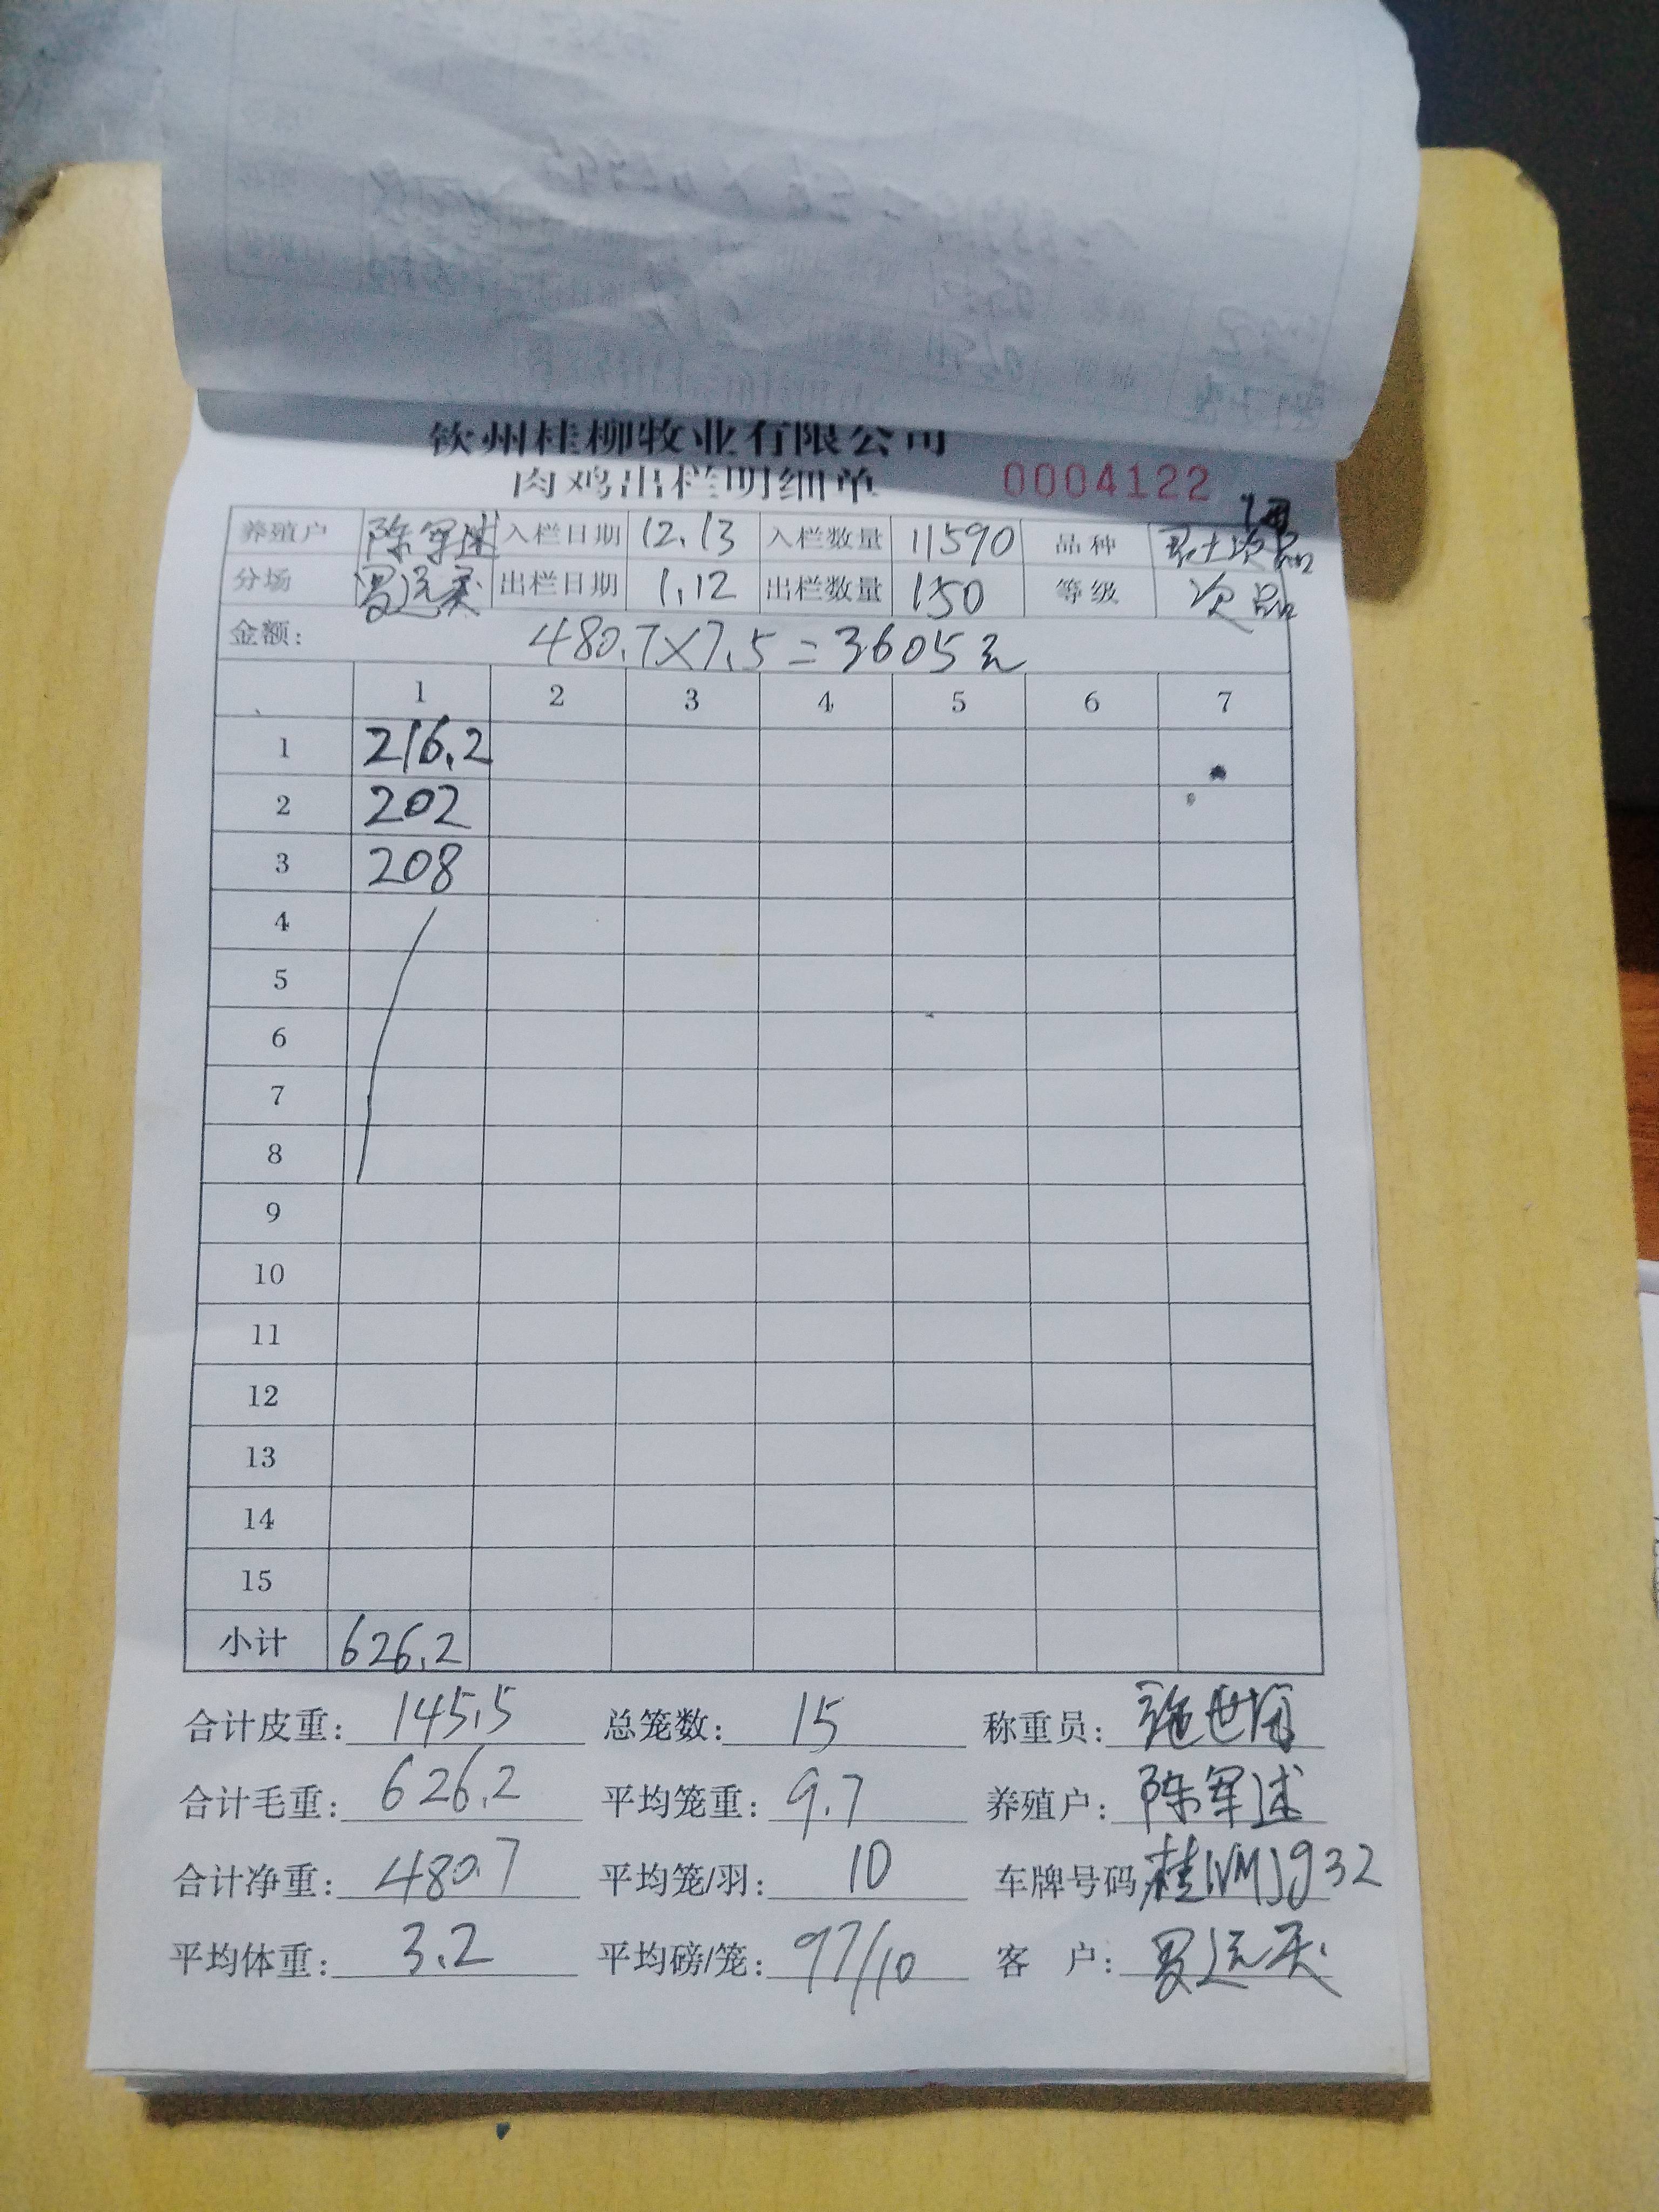 钦州桂柳牧业有限公司
肉鸡出栏明细单 0004122
养殖户 陈军述 入栏日期 12.13 入栏数量 11590 品种 次品
分场 罗运 出栏日期 1.12 出栏数量 150 等级 次品
金额: 480.7×7.5=3605元
1 2 3 4 5 6 7
1 216.2
2 202
3 208
4
5
6
7
8
9
10
11
12
13
14
15
小计 626.2
合计皮重: 145.5 总笼数: 15 称重员: 施世
合计毛重: 626.2 平均笼重: 9.7 养殖户: 陈军述
合计净重: 480.7 平均笼/羽: 10 车牌号码 桂
平均体重: 3.2 平均磅/笼: 97/10 客户: 罗运